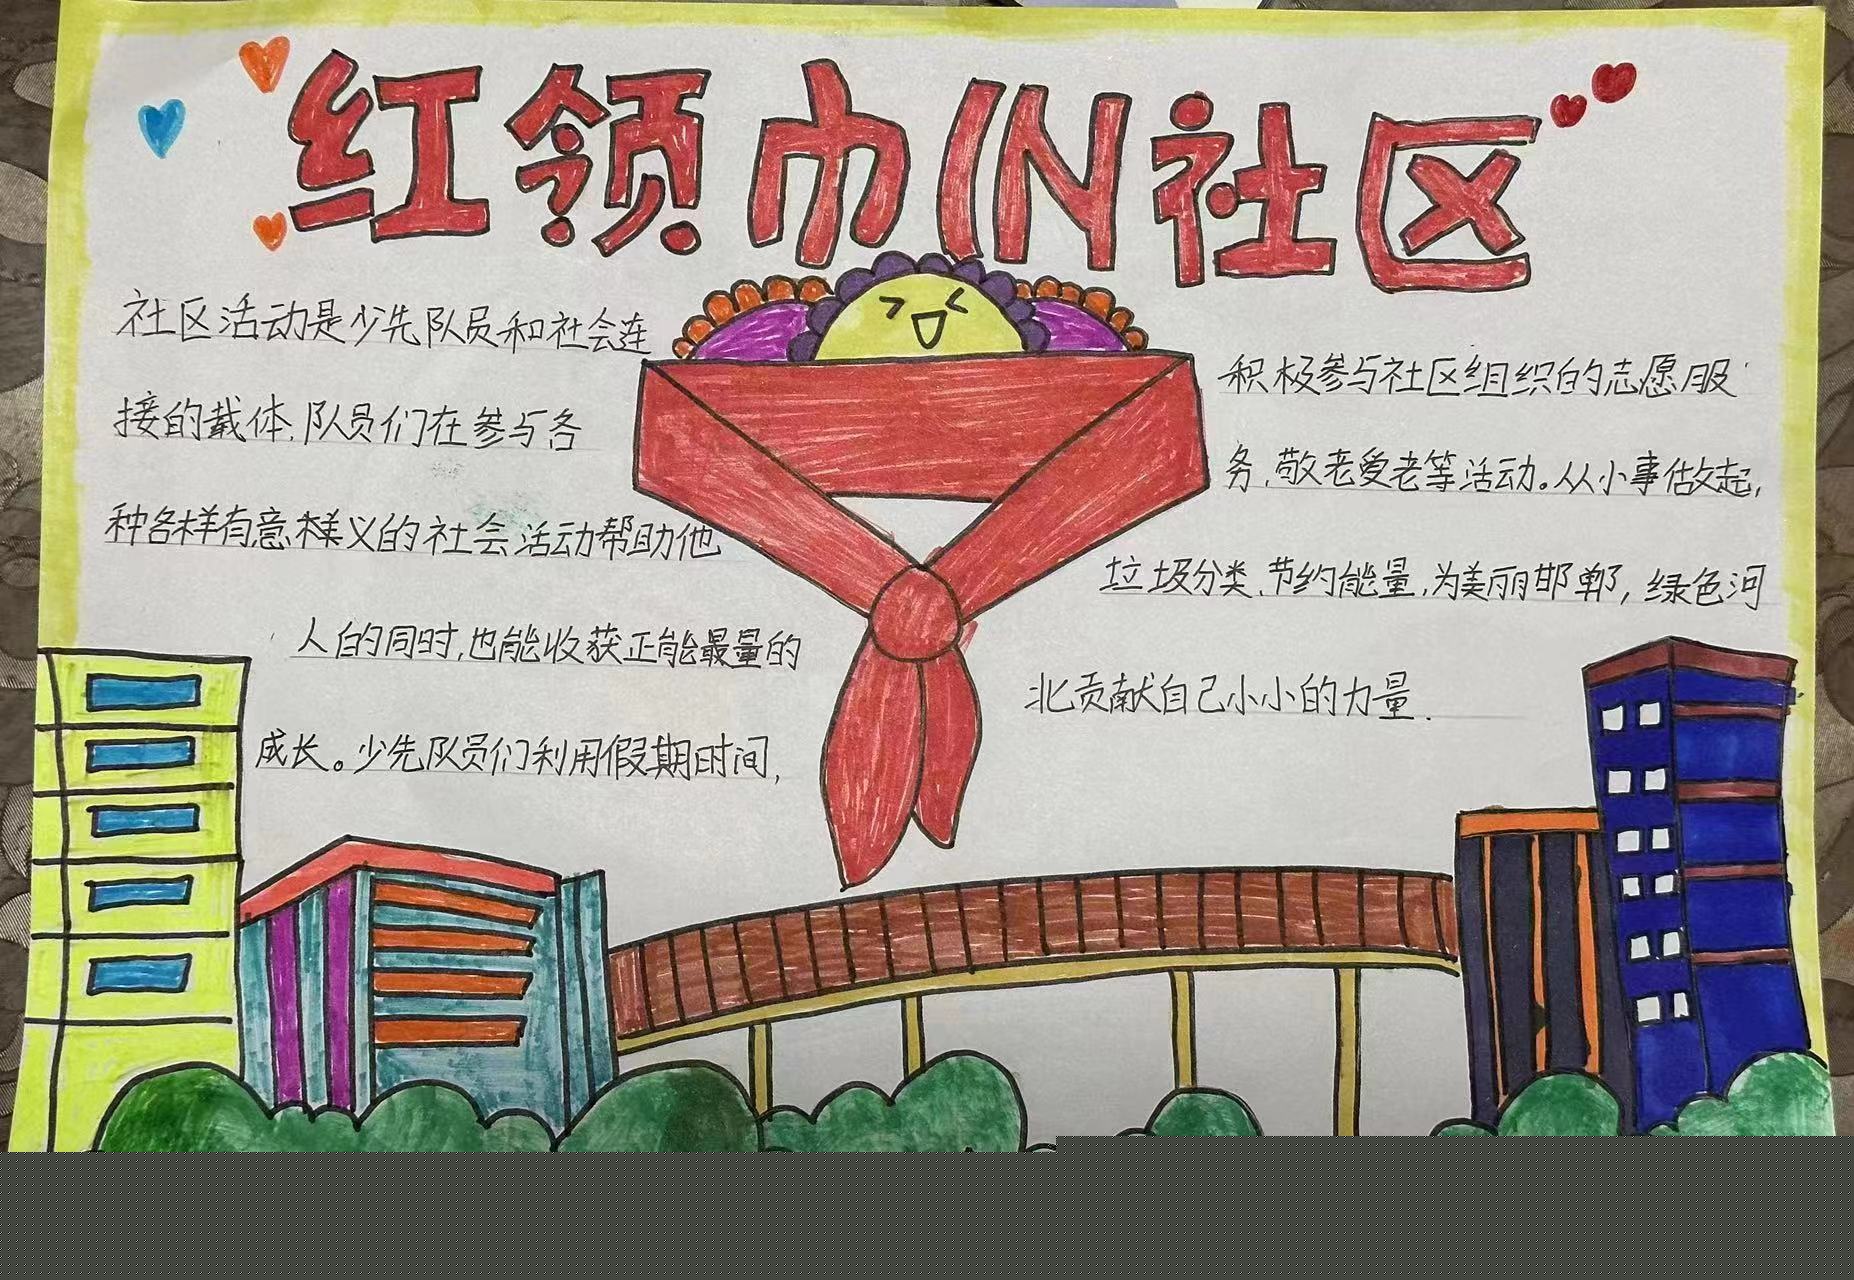 红领巾IN社区
社区活动是少先队员和社会连
接的载体.队员们在参与各
种各样有意义的社会活动帮助他
人的同时,也能收获正能量的
成长。少先队员们利用假期时间,
积极参与社区组织的志愿服
务.敬老爱老等活动。从小事做起,
垃圾分类.节约能量,为美丽邯郸,绿色河
北贡献自己小小的力量.